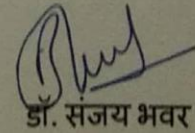 डॉ. संजय भवर